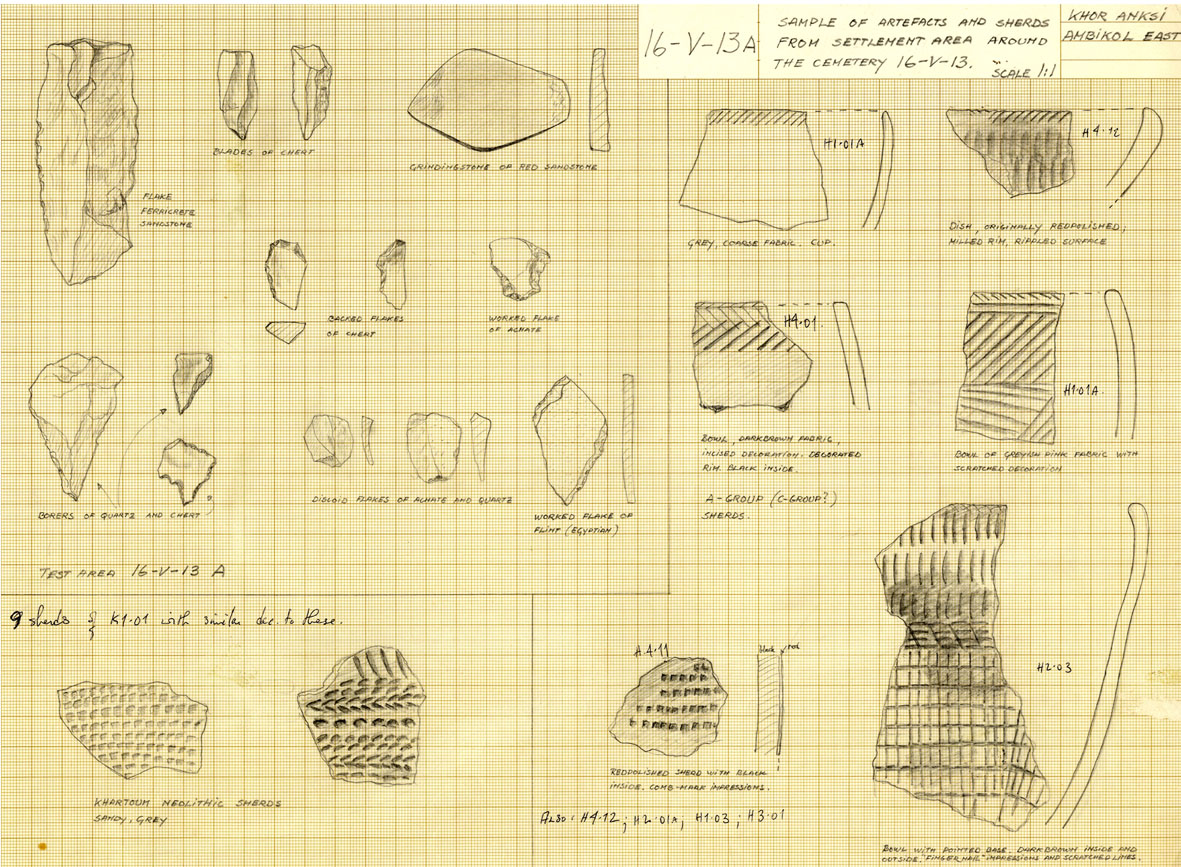 16-V-13A
SAMPLE OF ARTEFACTS AND SHERDS
FROM SETTLEMENT AREA AROUND
THE CEMETERY 16-V-13.
SCALE 1:1
KHOR ANKSI
AMBIKOL EAST
FLAKE
FERRICRETE
SANDSTONE
BLADES OF CHERT
GRINDINGSTONE OF RED SANDSTONE
BACKED FLAKES
OF CHERT
WORKED FLAKE
OF ACHATE
BORERS OF QUARTZ AND CHERT
DISCOID FLAKES OF ACHATE AND QUARTZ
WORKED FLAKE OF
FLINT (EGYPTIAN)
TEST AREA 16-V-13 A
H1·01A
GREY, COARSE FABRIC. CUP.
H4·12
DISH, ORIGINALLY REDPOLISHED;
MILLED RIM, RIPPLED SURFACE
H4·01.
BOWL, DARKBROWN FABRIC,
INCISED DECORATION. DECORATED
RIM. BLACK INSIDE.
A-GROUP (C-GROUP?)
SHERDS.
H1·01A.
BOWL OF GREYISH PINK FABRIC WITH
SCRATCHED DECORATION
9 sherds of K1·01 with similar dec. to these.
KHARTOUM NEOLITHIC SHERDS
SANDY, GREY
H4·11
black red
REDPOLISHED SHERD WITH BLACK
INSIDE. COMB-MARK IMPRESSIONS.
ALSO: H4·12; H2·01A; H1·03; H3·01
H2·03
BOWL WITH POINTED BASE. DARKBROWN INSIDE AND
OUTSIDE. "FINGER NAIL" IMPRESSIONS AND SCRATCHED LINES.